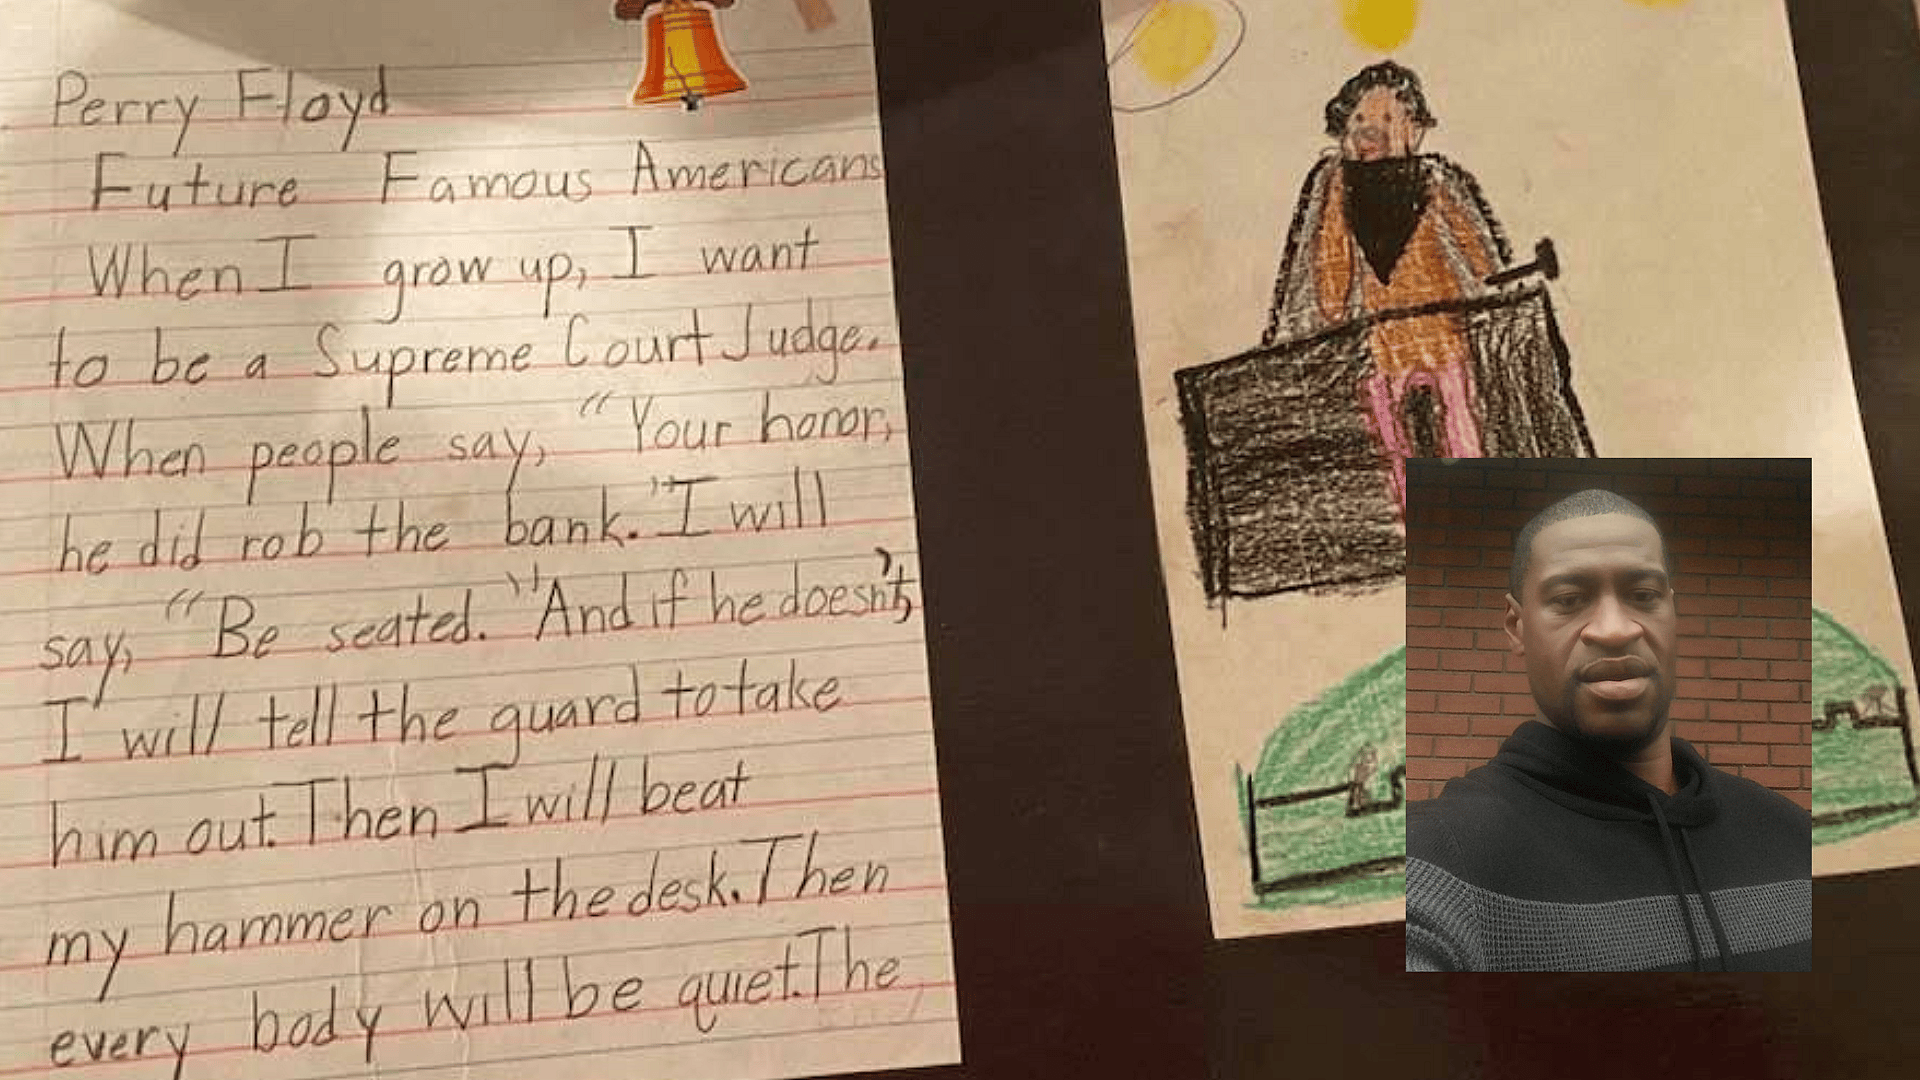 Perry Floyd
Future Famous Americans
When I grow up, I want
to be a Supreme Court Judge.
When people say, "Your honor,
he did rob the bank." I will
say, "Be seated." And if he doesn't,
I will tell the guard to take
him out. Then I will beat
my hammer on the desk. Then
every body will be quiet. The